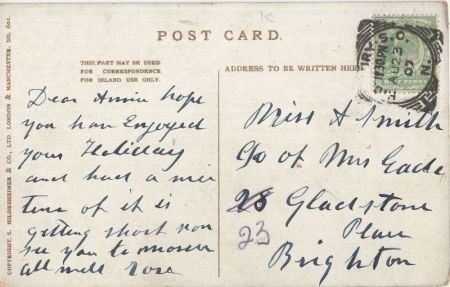 POST CARD.
THIS PART MAY BE USED
FOR CORRESPONDENCE
FOR INLAND USE ONLY.
ADDRESS TO BE WRITTEN HERE
COPYRIGHT, S. HILDESHEIMER & CO., LTD. LONDON & MANCHESTER. NO. 601.
K
S.O.
AU 23
07
Dear Annie hope
you have Enjoyed
your Holiday
and had a nice
time of it is
getting short now
see you to morrow
all well Rose
Miss A Smith
C/o of Mrs Eade
28 Gladstone
23 Place
Brighton